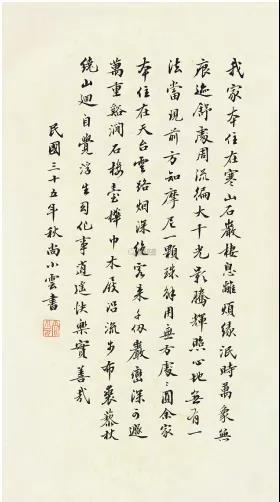 我家本住在寒山石巖棲息離煩緣泯時萬象無
痕跡舒處周流徧大千光影騰輝照心地無有一
法當現前方知摩尼一顆珠解用無方處處圓余家
本住在天台雲路烟深絕客來千仞巖巒深可遯
萬重谿澗石樓臺樺巾木屐沿流步布裘藜杖
繞山迴自覺浮生幻化事逍遙快樂實善哉
民國三十五年秋尚小雲書